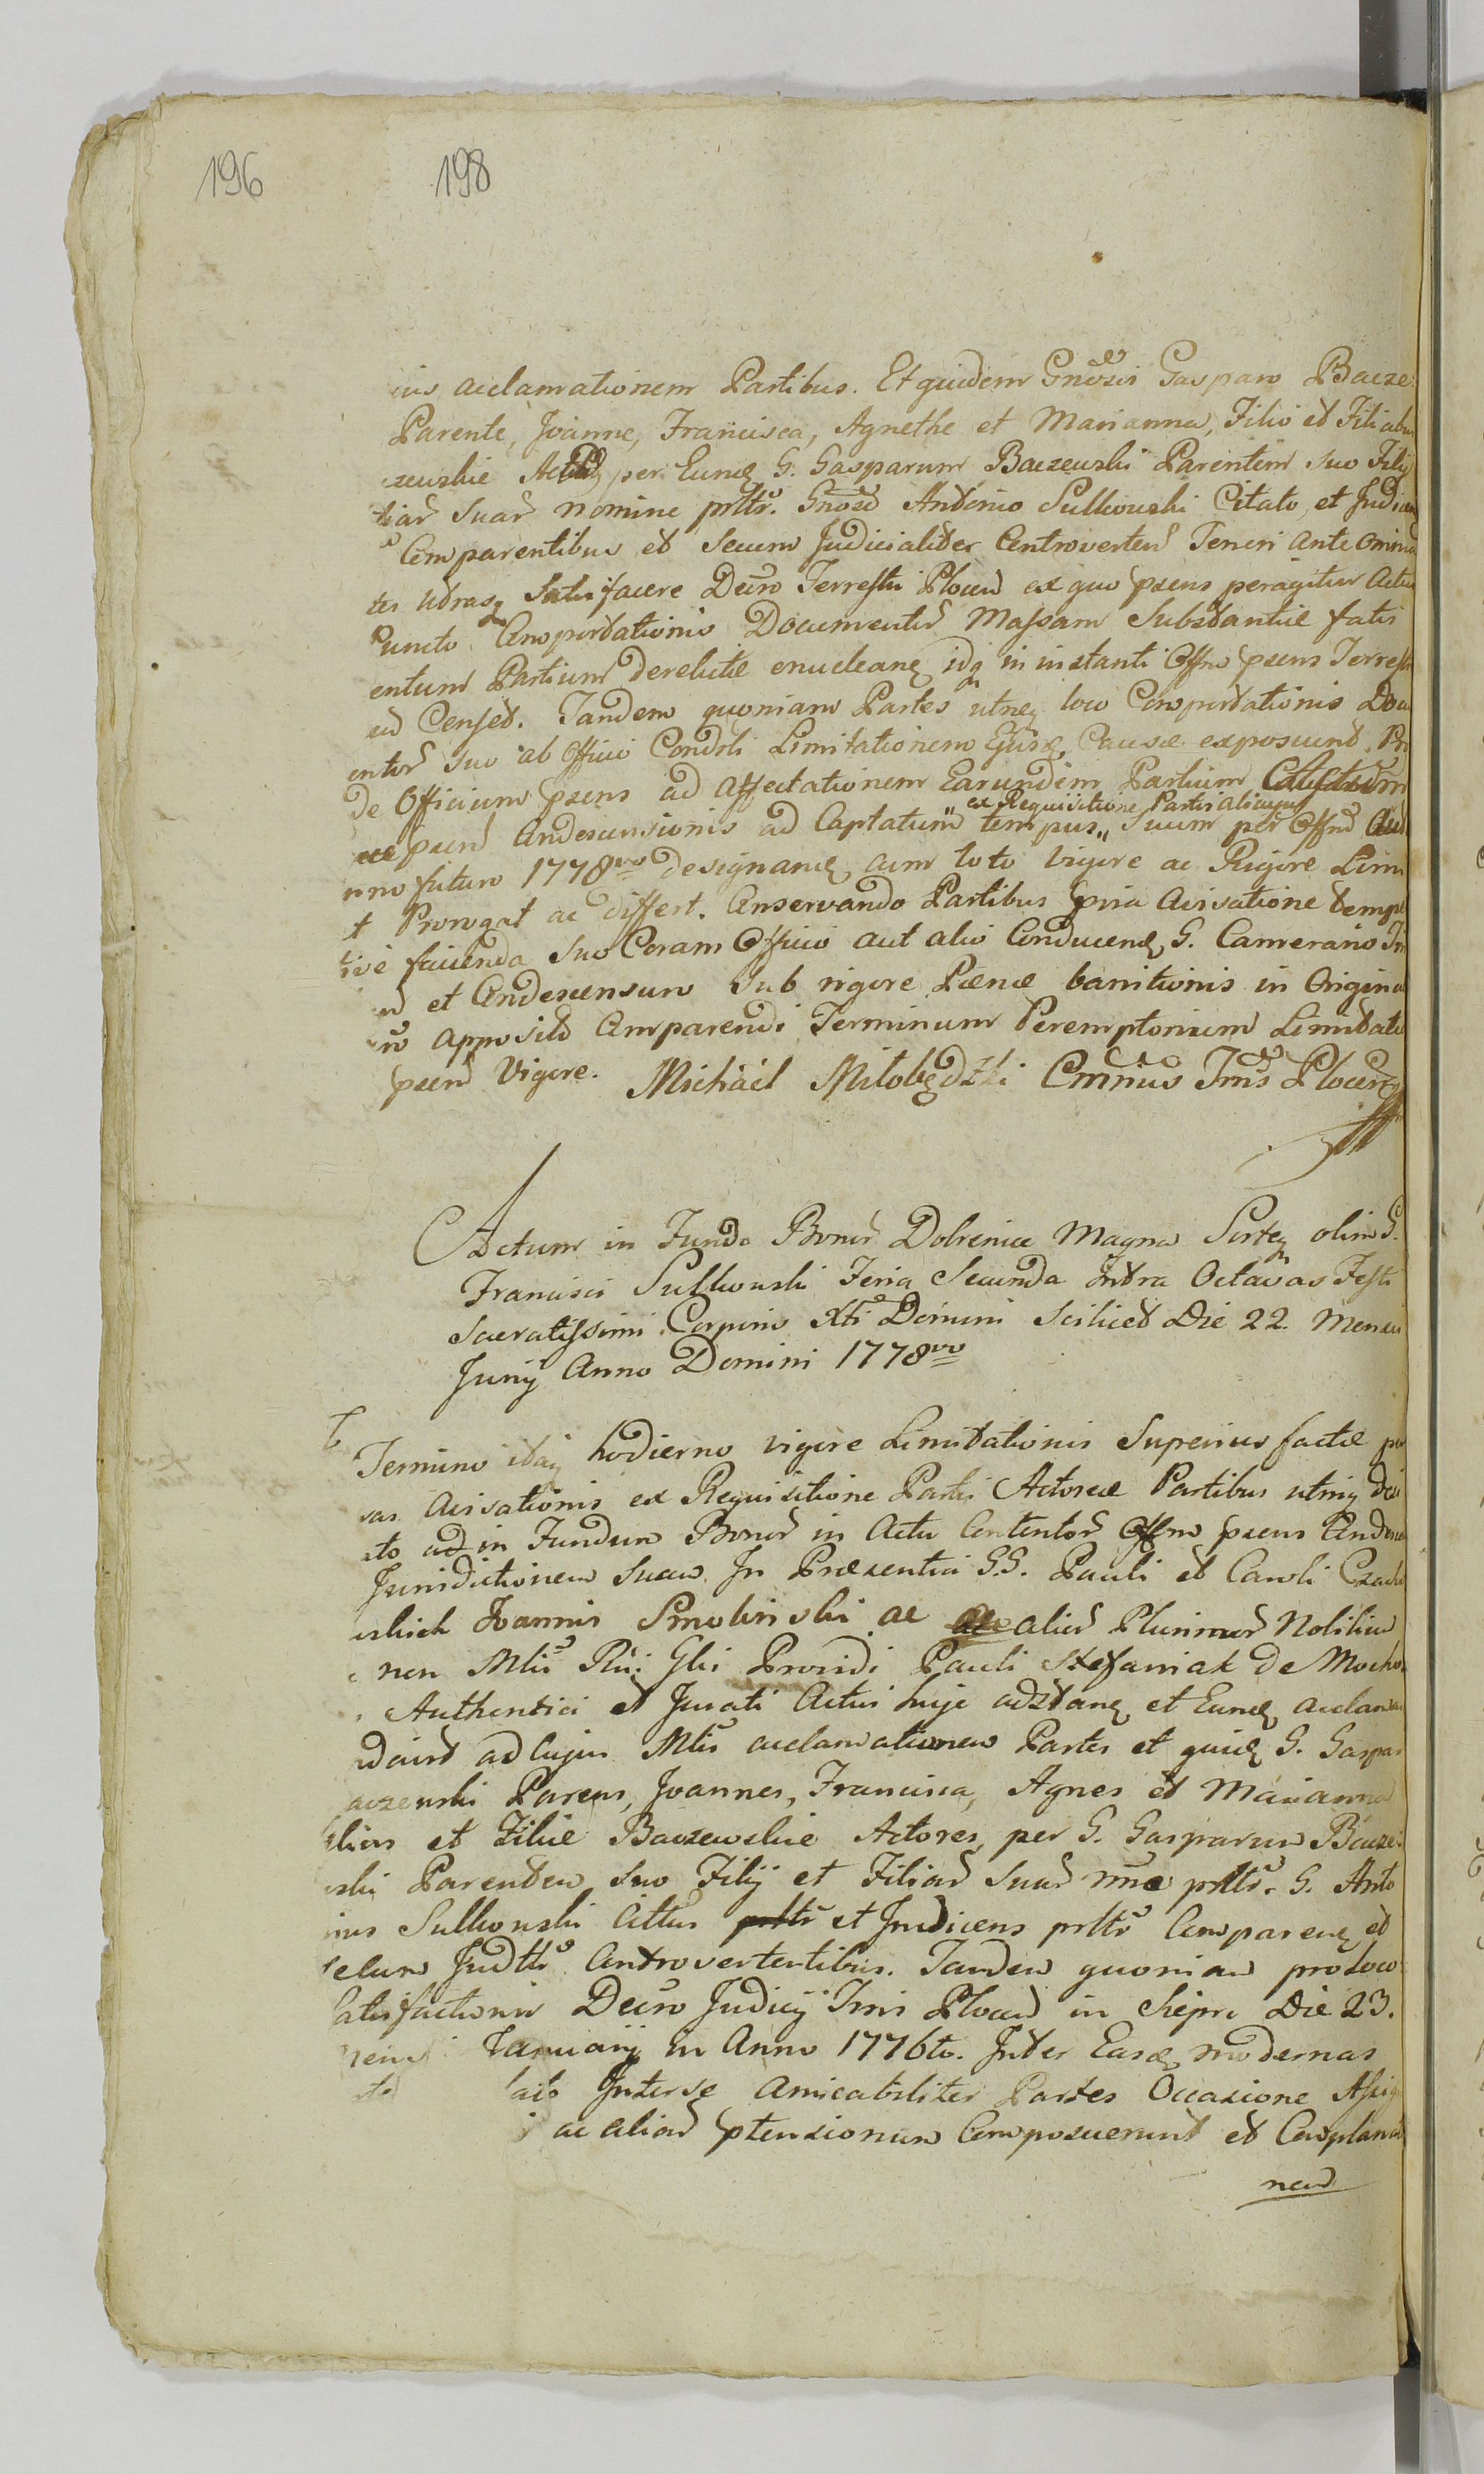 196 198
ius acclamationem Partibus. Et quidem Gnosis Gasparo Bacze
Parente, Joanne, Francisca, Agnethe et Marianna, Filio et Filiabus
czewskie per Eund G. Gasparum Baczewski Parentem suo Filij
liar suar nomine prltr. Gnoso Antonio Sulkowski Citato, et Judicen
Comparentibus et Secum Judicialiter Controverten Teneri ante omnia
tes utrasq Satisfacere Decro Terrestri Plocen ex quo psens peragitur Actus
Puncto Comportationis Documentor Massam Substantiæ fatis
entum Partium derelictæ enuclean idq in instanti Offm psens Terrestre
ed Censet. Tandem quoniam Partes utræq loco Comportationis Docu
entor suo ab Officio Condrli Limitationem Ejusd Causæ exposcunt. Pro
de Officium psens ad affectationem Earundem Partium
psen Condescensionis ad Captatum „ tempus „ Suum per Offm
ex Requisitione Partis alicujus
nno futuro 1778vo designand cum toto vigore ac Rigore Limi
t Prorogat ac differt. Conservando Partibus pvia Avisatione tempe
tivè facienda suo Coram Officio aut alio Conducend G. Camerario
et Condescensuro Sub rigore Pænæ banitionis in Origina
ro apposito Comparendi Terminum Peremptorium Limitatio
psen Vigore. Michael Miłobędzki Cmrius Trris Plocen
Actum in Fundo Bonor Dobrenice Magna Sorteq olim G.
Francisci Sulkowski Feria Secunda Intra Octavas Festi
Sacratissimi Corporis Xti Domini Scilicet Die 22. Mensis
Junij Anno Domini 1778vo
Termino itaq hodierno vigore Limitationis Superius factæ per
vas Avisationis ex Requisitione Partis Actoreæ Partibus utrinq
to ad in Fundum Bonor in Actu Contentor Offm psens
Jurisdictionem Suam In Præsentia G.G. Pauli et Caroli
wskich Joannis Smolinski ac ac alior Plurimor Nobilium
nen Mlis Rii Glis Providi Pauli Stefaniak de Mocho
Authentici et Jurati Actui huic adstand et Eund acclaman
ad cujus Mlis acclamationem Partes et quid G. Gaspar
aczewski Parens, Joannes, Francisca, Agnes et Marianna
lius et Filiæ Baczewskie Actores, per G. Gasparum Bacze
wski Parentem suo Filij et Filiar Suar nne prltr. G. Anto
nius Sulkowski Cittus prltr et Judicens prltr Comparend et
Secum Judltr Controvertentibus. Tandem quoniam pro loco
Satisfactionis Decro Judicij Trris Plocen in Sierpc Die 23.
Mensis Januarij in Anno 1776to. Inter Easd modernas
lato Interse Amicabiliter Partes Occasione
ac alior ptensionum Composuerunt et Complana